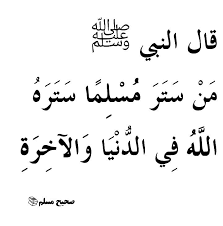 قال النبي ﷺ
مَنْ سَتَرَ مُسْلِمًا سَتَرَهُ
اللَّهُ فِي الدُّنْيَا وَالآخِرَةِ
صحيح مسلم